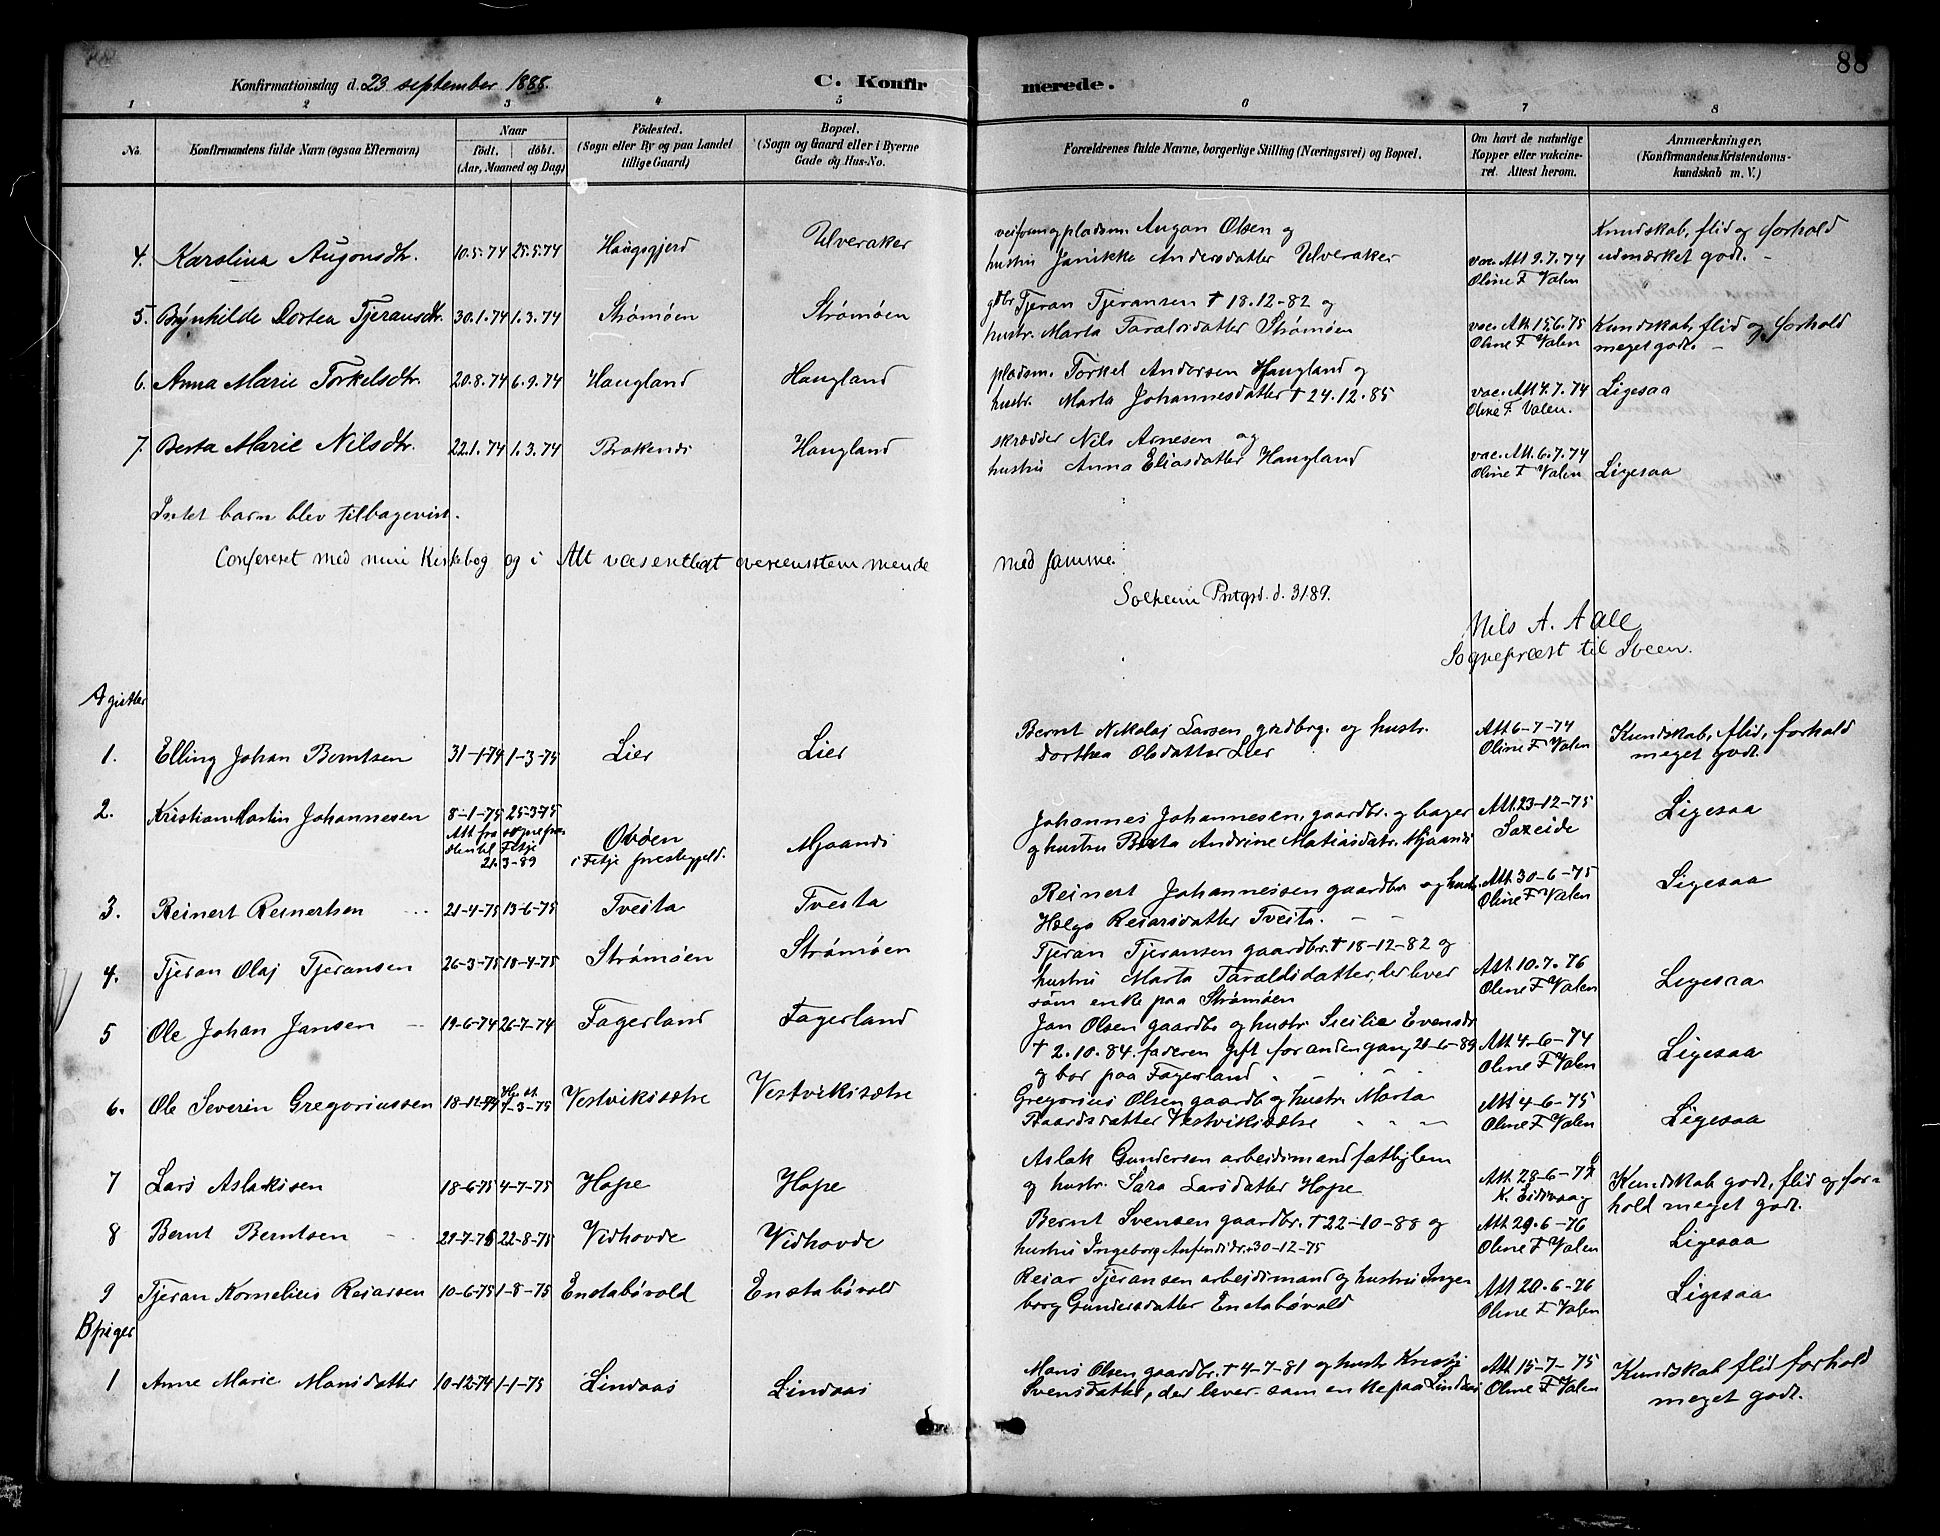 88
Konfirmationsdag d. 23 september 1888. C. Konfirmerede.
1 2 3 4 5 6 7 8
No. Konfirmandens fulde Navn (ogsaa Efternavn) Naar födt. döbt. (Aar, Maaned og Dag) Födested. (Sogn eller By og paa Landet tillige Gaard) Bopæl. (Sogn og Gaard eller i Byerne Gade og Hus-No. Forældrenes fulde Navne, borgerlige Stilling (Næringsvei) og Bopæl. Om havt de naturlige Kopper eller vakcineret. Attest herom. Anmærkninger. (Konfirmandens Kristendomskundskab m. V.)
4. Karolina Augonsdtr. 10.5.74 25.5.74 Haugsgjerd Ulveraker pladsm. Augon Olsen og
hustru Janikke Andersdatter Ulveraker vac. Att 9.7.74 Oline F Valen Kundskab, flid og forhold udmærket godt. –
5. Brynhilde Dortea Tjeransdtr. 30.1.74 1.3.74 Strømøen Strømøen gdbr Tjeran Tjeransen † 18.12-82 og
hustr. Marta Taraldsdatter Strømøen vac. Att 15.6.75 Oline F Valen Kundskab, flid og forhold meget godt. –
6. Anna Marie Torkelsdtr. 20.8.74 6.9.74 Haugland Haugland pladsm. Torkel Andersen Haugland og
hustr. Marta Johannesdatter † 24.12.85 vac. Att 4.7.74 Oline F Valen. Ligesaa
7. Berta Marie Nilsdtr. 22.1.74 1.3.74 Brakends Haugland skrædder Nils Arnesen og
hustru Anna Eliasdatter Haugland vac. Att. 6.7.74 Oline F Valen Ligesaa
Intet barn blev tilbagevist.
Confereret med min Kirkebog og i Alt væsentligt overeensstemmende med samme.
Solheim Prstgrd. d. 3189.
Nils A. Aale
Sognepræst til Sveen.
A gutter
1. Elling Johan Berntsen 31-1-74 1-3-75 Lier Lier Bernt Nikolaj Larsen grdbrg. og hustr.
Dorthea Olsdatter Lier Att 6-7-74 Oline F Valen Kundskab, flid, forhold meget godt.
2. Kristian Martin Johannesen 8-1-75 25-3-75 Att fra sognepresten til Fitje 21-3-89 Øvøen i Fitje prestegjeld. Mjaands Johannes Johannesen, gaardbr. og bager
og hustru Berta Andrine Matiasdatr. Mjaands Att. 23-12-75 Sazeide Ligesaa
3. Reinert Reinertsen 21-4-75 13-6-75 Tveita Tveita Reinert Johannessen gaardbr og hustr.
Helga Reiarsdatter Tveita. – – Att. 30-6-75 Oline F Valen Ligesaa
4. Tjeran Olaj Tjeransen 26-3-75 18-4-75 Strømøen Strømøen Tjeran Tjeransen gaardbr. † 18-12-82 og
hustru Marta Taraldsdatter, der lever
som enke paa Strømøen Att. 10.7.76 Oline F Valen Ligesaa
5 Ole Johan Jansen – 19-6-74 26-7-74 Fagerland Fagerland Jan Olsen gaardbr og hustr. Sicilie Evensdr
† 2.10.84. faderen gift for anden gang 21-6-89
og bor paa Fagerland Att 4-6-74 Oline F Valen Ligesaa
6. Ole Severin Gregoriussen 18-12-74 Hj. dt. 7-3-75 Vestviksætre Vestviksætre Gregorius Olsen gaardb og hustr. Marta
Baardsdatter Vestviksætre Att 4-6-75 Oline F Valen Ligesaa
7 Lars Aslaksen 18-6-75 4-7-75 Hope Hope Aslak Gundersen arbeidsmand fatt
og hustr. Sara Larsdatter Hope Att 28-6-7 K. Eidsvaag Kundskab godt, flid og forhold meget godt.
8 Bernt Berntsen – 29-7-75 22-8-75 Vidhovde Vidhovde Bernt Svensen gaardbr. † 22-10-88 og
hustru Ingeborg Anfindsdr. 30-12-75 Att 29.6-76 Oline F Valen Ligesaa
9 Tjeran Kornelius Reiarsen 10-6-75 1-8-75 Enstabøvold Enstabøvold Reiar Tjeransen arbeidsmand og hustru Ingeborg
Gundersdatter Enstabøvold Att 20-6-76 Oline F. Valen Ligesaa
B piger
1 Anne Marie Monsdatter 10-12-74 1-1-75 Lindaas Lindaas Mons Olsen gaardbr. † 4-7-81 og hustr Kristj
Svensdatter, der lever som enke paa Lindaas Att 15-7-75 Oline F Valen Kundskab flid forhold meget godt.